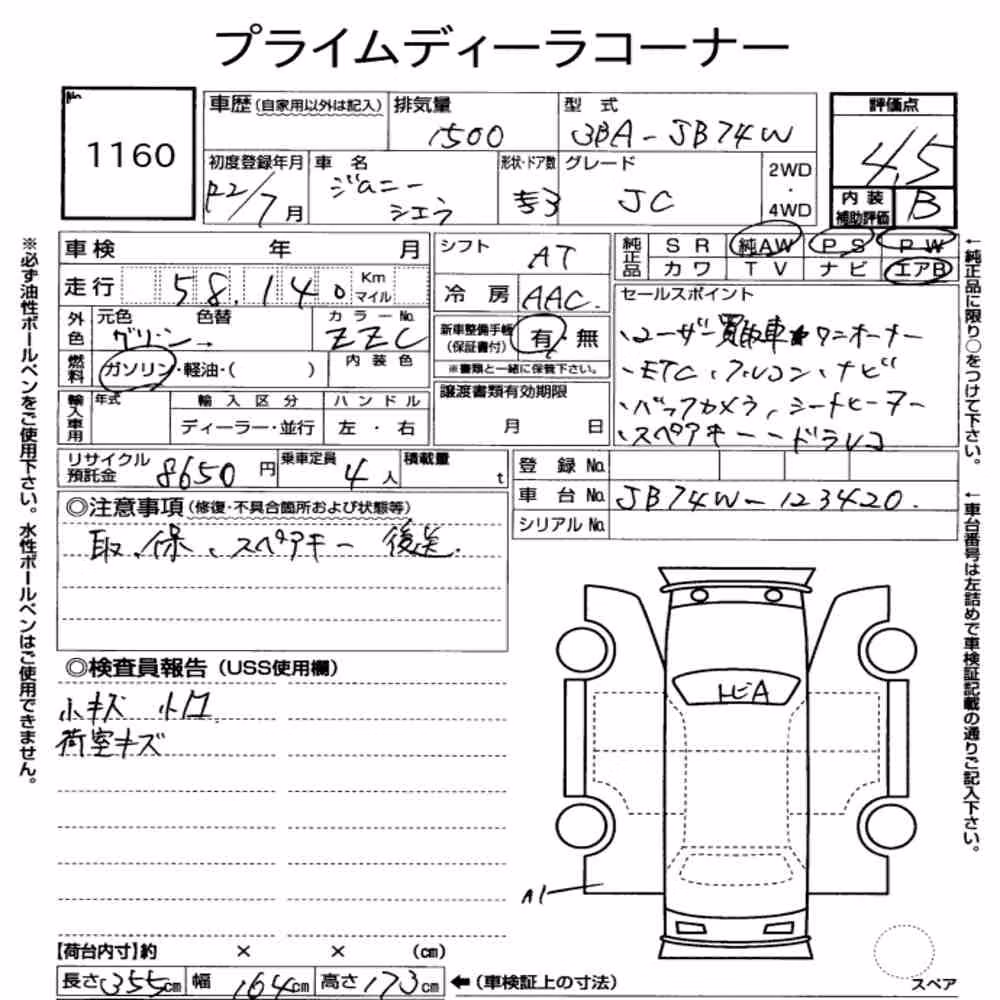 プライムディーラコーナー
1160
車歴(自家用以外は記入)
排気量 1500
型式 3BA-JB74W
評価点 4.5
初度登録年月 R2/7月
車名 ジムニーシエラ
形状・ドア数 3
グレード JC
2WD・4WD
内装補助評価 B
車検 年 月
走行 58,140 Km マイル
外色 元色 グリーン→ 色替 カラーNo. ZZC
燃料 ガソリン・軽油・( ) 内装色
輸入車用 年式 輸入区分 ハンドル
ディーラー・並行 左・右
シフト AT
冷房 AAC.
新車整備手帳(保証書付) 有・無
※書類と一緒に保管下さい。
譲渡書類有効期限
月 日
純正品 SR 純AW PS PW
カワ TV ナビ エアB
セールスポイント
・ユーザー買取車 ワンオーナー
・ETC、アルコン、ナビ
・バックカメラ、シートヒーター
・スペアキー ードラレコ
リサイクル預託金 8650円 乗車定員 4人 積載量 t
登録No.
車台No. JB74W-123420.
シリアルNo.
◎注意事項(修復・不具合箇所および状態等)
取、保、スペアキー 後送.
◎検査員報告(USS使用欄)
小キズ 小凹
荷室キズ
トビA
A1
【荷台内寸】約 × × (cm)
長さ355cm 幅164cm 高さ173cm ←(車検証上の寸法)
スペア
※必ず油性ボールペンをご使用下さい。水性ボールペンはご使用できません。
←純正品に限り○をつけて下さい。
←車台番号は左詰めで車検証記載の通りご記入下さい。